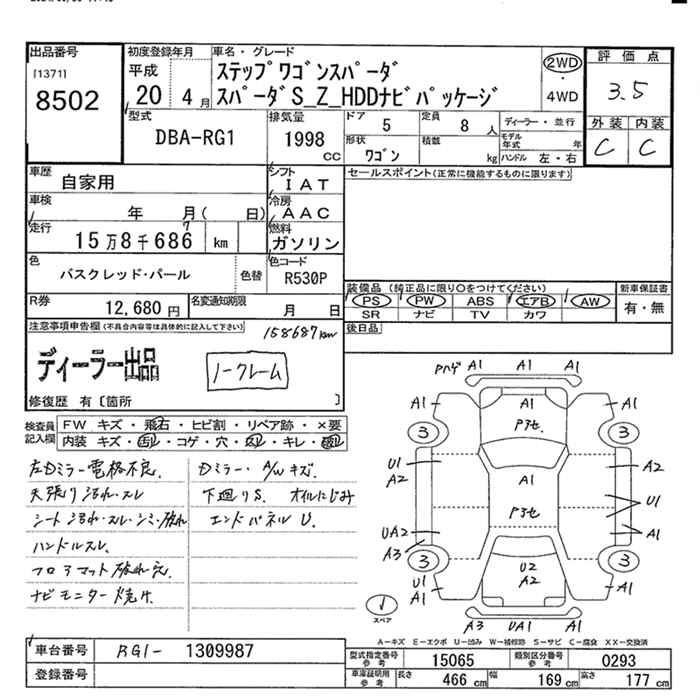 出品番号
[1371]
8502
初度登録年月
平成
20 4月
車名・グレード
ステップワゴンスパーダ
スパーダS_Z_HDDナビパッケージ
2WD
4WD
評価点
3.5
外装 内装
C C
型式
DBA-RG1
排気量
1998
CC
ドア
5
定員
8人
形状
ワゴン
積数
kg
ディーラー・並行
モデル年式 年
ハンドル 左・右
車歴
自家用
シフト
IAT
車検
年 月( 日)
冷房
AAC
走行
15万8千686 km
7
燃料
ガソリン
色
バスクレッド・パール
色替
色コード
R530P
R券
12,680円
名変通知期限
月 日
セールスポイント(正常に機能するものに限ります)
装備品(純正品に限り○をつけてください)
PS PW ABS エアB AW
SR ナビ TV カワ
新車保証書
有・無
後日品
注意事項申告欄(不具合内容等は具体的に記入して下さい)
158687km
ディーラー出品
ノークレーム
修復歴 有〔箇所 〕
検査員記入欄
FW キズ・飛石・ヒビ割・リペア跡・×要
内装 キズ・凹・コゲ・穴・スレ・キレ・破れ
左Dミラー電格不良.
天張り汚れ・スレ
シート汚れ・スレ・シミ・破れ
ハンドルスレ.
フロアマット破れ穴.
ナビモニター焼け
Dミラー・A/Wキズ.
下廻りS. オイルにじみ
エンドパネルU.
Pハゲ A1 A1 A1
A1 A1 A1
Pアセ
3 3
U1 A2 A1 A2
Pアセ
U1
UA2 A1
A3
3 3
U2
A2
U1
A1 A1
スペア
A3 UA1 A2
A-キズ E-エクボ U-凹み W-補修跡 S-サビ C-腐食 XX-交換済
車台番号
RG1-1309987
登録番号
型式指定番号
参考
15065
類別区分番号
参考
0293
車庫証明用
参考
長さ
466 cm
幅
169 cm
高さ
177 cm